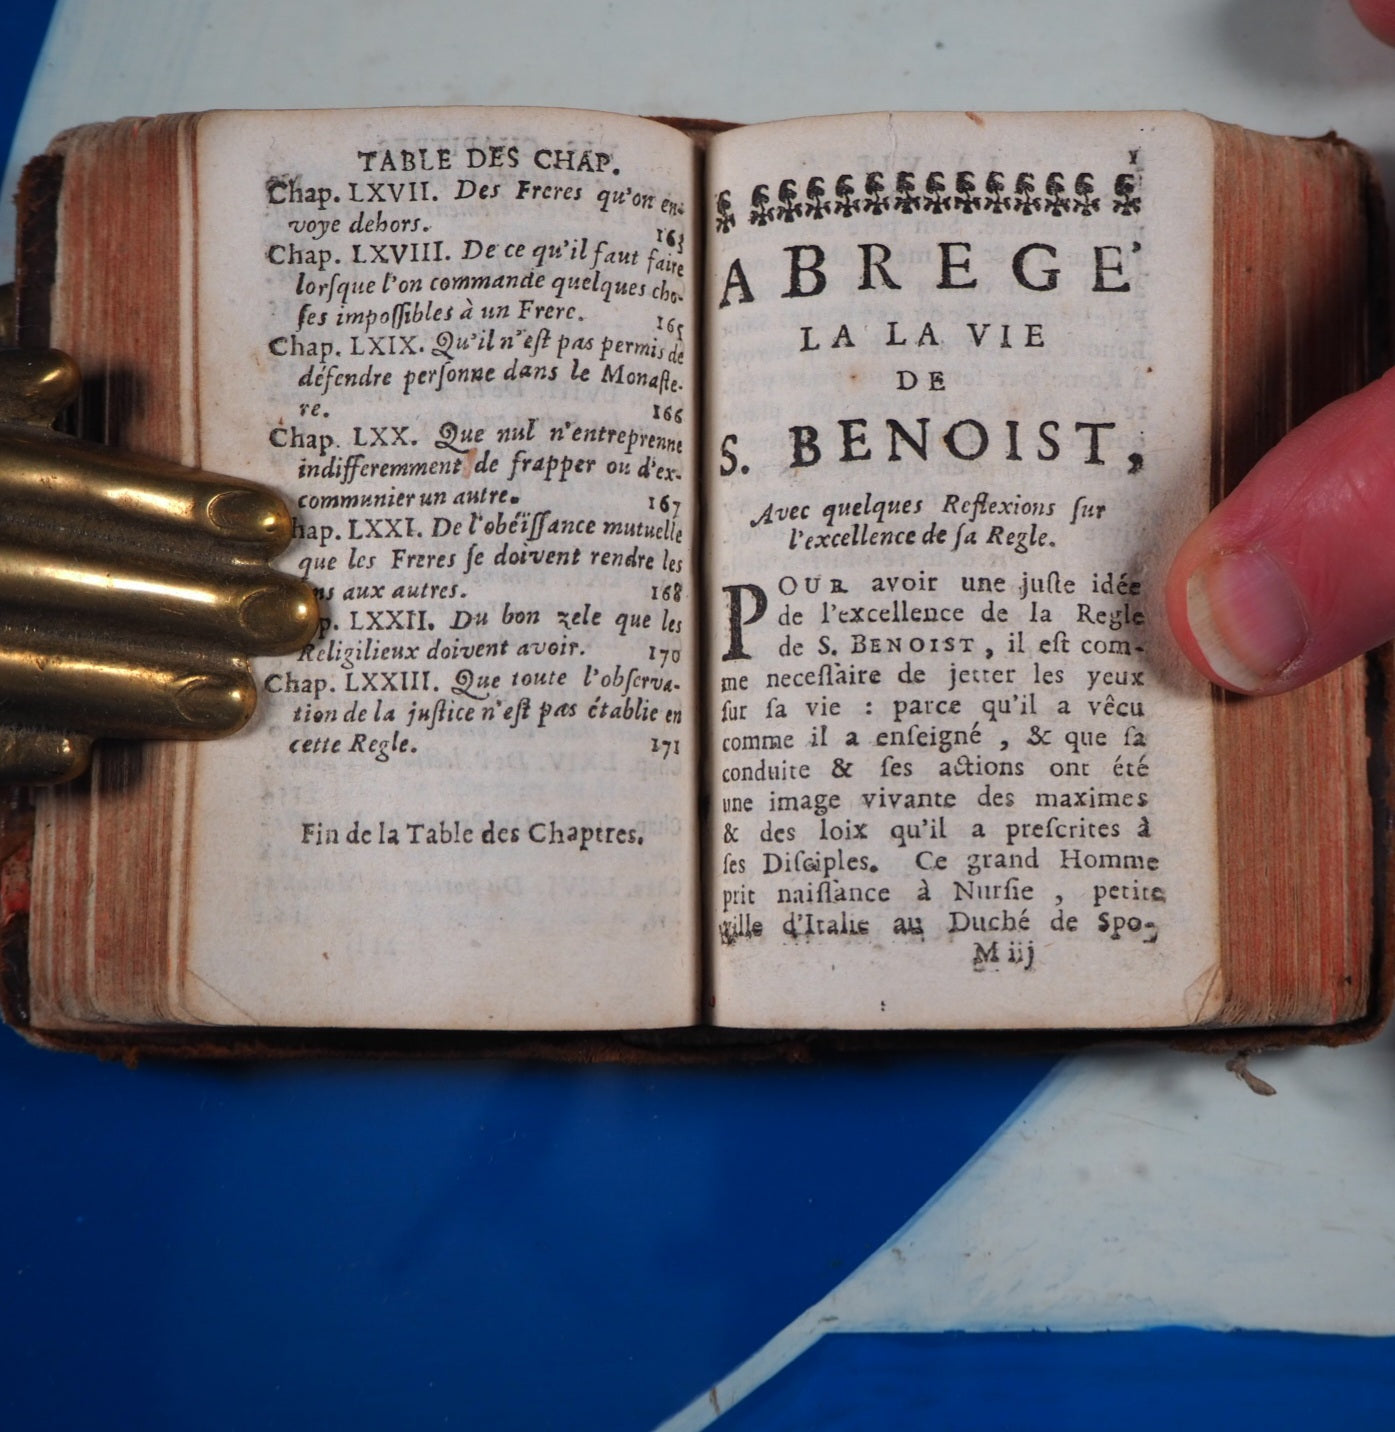 TABLE DES CHAP.
Chap. LXVII. Des Freres qu'on en-
voye dehors. 163
Chap. LXVIII. De ce qu'il faut faire
lorſque l'on commande quelques cho-
ſes impoſſibles à un Frere. 165
Chap. LXIX. Qu'il n'eſt pas permis de
défendre perſonne dans le Monaſte-
re. 166
Chap. LXX. Que nul n'entreprenne
indifferemment de frapper ou d'ex-
communier un autre. 167
hap. LXXI. De l'obéïſſance mutuelle
que les Freres ſe doivent rendre les
ns aux autres. 168
p. LXXII. Du bon zele que les
Religilieux doivent avoir. 170
Chap. LXXIII. Que toute l'obſerva-
tion de la juſtice n'eſt pas établie en
cette Regle. 171
Fin de la Table des Chaptres.
1
ABREGE'
LA LA VIE
DE
S. BENOIST,
Avec quelques Reflexions ſur
l'excellence de ſa Regle.
POUR avoir une juſte idée
de l'excellence de la Regle
de S. BENOIST, il eſt com-
me neceſſaire de jetter les yeux
ſur ſa vie : parce qu'il a vêcu
comme il a enſeigné , & que ſa
conduite & ſes actions ont été
une image vivante des maximes
& des loix qu'il a preſcrites à
ſes Diſciples. Ce grand Homme
prit naiſſance à Nurſie , petite
ville d'Italie au Duché de Spo-
M iij